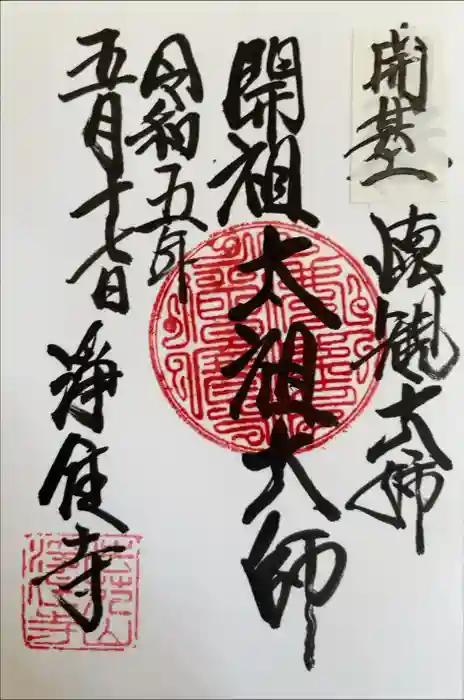 開基
観大師
開祖太祖大師
令和五年
五月十七日
浄住寺